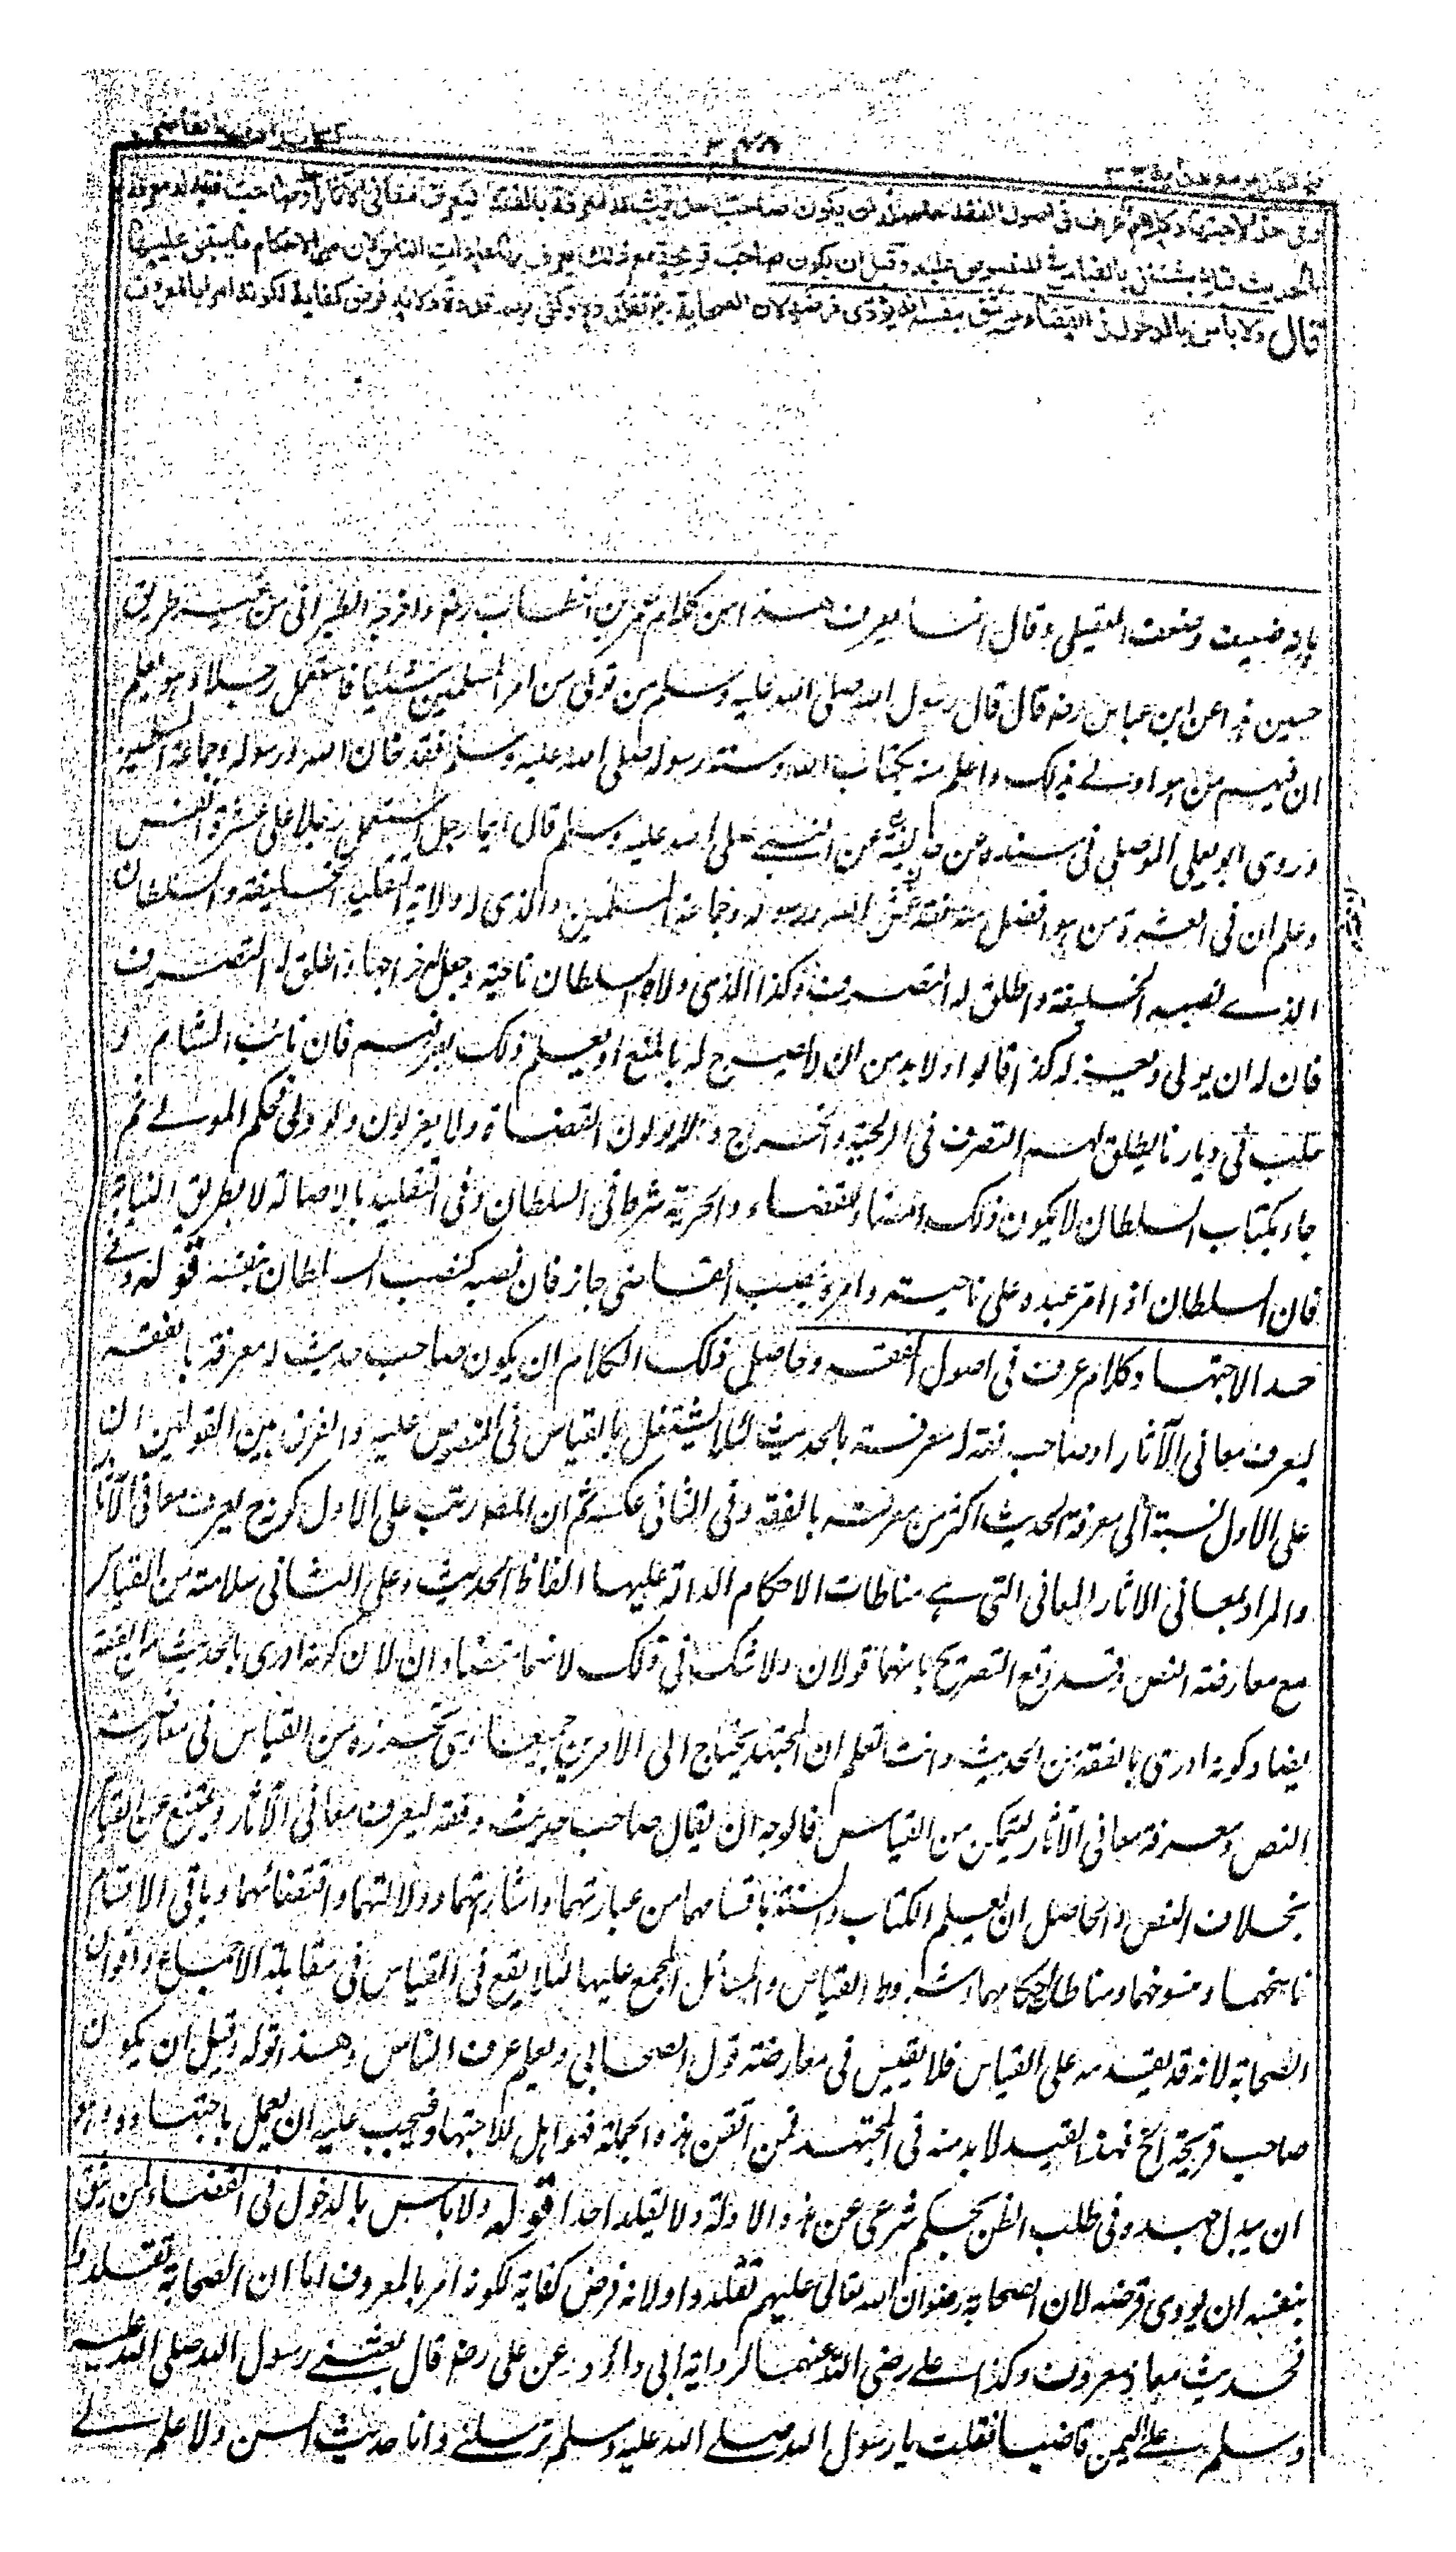 كتاب ادب القاضي
وفي حد الاجتهاد كلام عرف في اصول الفقه وحاصله ان يكون صاحب حديث له معرفة بالفقه ليعرف معاني الآثار او صاحب فقه له معرفة
بالحديث لئلا يشتغل بالقياس في المنصوص عليه وقيل ان يكون صاحب قريحة مع ذلك يعرف بها عادات الناس لان من الاحكام ما يبتنى عليها
قال ولا باس بالدخول في القضاء لمن يثق بنفسه ان يؤدى فرضه لان الصحابة رض تقلدوه وكفى بهم قدوة ولانه فرض كفاية لكونه امرا بالمعروف
بانه ضعيف وضعف العقيلي وقال انما يعرف هذا من كلام عمر بن الخطاب رضه واخرجه الطبراني من غير طريق
حسين هذا عن ابن عباس رضه قال قال رسول الله صلى الله عليه وسلم من تولى من امر المسلمين شيئا فاستعمل رجلا وهو يعلم
ان فيهم من هو اولى بذلك واعلم منه بكتاب الله وسنة رسوله صلى الله عليه وسلم فقد خان الله ورسوله وجماعة المسلمين
وروى ابو يعلى الموصلي في مسنده عن حذيفة عن النبي صلى الله عليه وسلم قال ايما رجل استعمل رجلا على عشرة انفس
وعلم ان في العشرة من هو افضل منه فقد غش الله ورسوله وجماعة المسلمين والذي له ولاية التقليد الخليفة والسلطان
الذي نصبه الخليفة واطلق له التصرف وكذا الذي ولاه السلطان ناحية وجعل له خراجها واطلق له التصرف
فان له ان يولى ويعزل كذا قالوا ولا بد من ان لا يصرح له بالمنع او يعلم ذلك بعرفهم فان نائب الشام و
حلب في ديارنا يطلق لهم التصرف في الرعية والخراج ولا يولون القضاة ولا يعزلون ولو ولى فحكم المولى ثم
جاء بكتاب السلطان لا يكون ذلك امضاء للقضاء والحرية شرط في السلطان وفي التقليد بالاصالة لا بطريق النيابة
فان السلطان اذا امر عبده على ناحية وامره بنصب القاضي جاز فان نصبه كنصب السلطان بنفسه قوله وفي
حد الاجتهاد كلام عرف في اصول الفقه وحاصل ذلك الكلام ان يكون صاحب حديث له معرفة بالفقه
ليعرف معاني الآثار او صاحب فقه له معرفة بالحديث لئلا يشتغل بالقياس في المنصوص عليه والفرق بين القولين ان
على الاول نسبته الى معرفة الحديث اكثر من معرفته بالفقه وفي الثاني عكسه ثم ان المص رتب على الاول كونه ح يعرف معاني الآثار
والمراد بمعاني الاثار المعاني التي هي مناطات الاحكام الدالة عليها الفاظ الحديث وعلى الثاني سلامته من القياس
مع معارضة النص وقد وقع التصريح بانهما قولان ولا شك في ذلك لانهما متضادان لان كونه ادرى بالحديث من الفقه
يضاد كونه ادرى بالفقه من الحديث وانت تعلم ان المجتهد يحتاج الى الامرين جميعا اعنى تحرزه من القياس في معارضة
النص ومعرفة معاني الآثار ليتمكن من القياس فالوجه ان يقال صاحب حديث وفقه ليعرف معاني الآثار ويمتنع عن القياس
بخلاف النص والحاصل ان يعلم الكتاب والسنة باقسامهما من عبارتهما واشارتهما ودلالتهما واقتضائهما وباقي الاقسام
ناسخهما ومنسوخهما ومناطات احكامهما وشروط القياس والمسائل المجمع عليها لئلا يقع في القياس في مقابلة الاجماع واقوال
الصحابة لانه قد يقدمه على القياس فلا يقيس في معارضته قول الصحابي ويعلم عرف الناس وهذا قوله وقيل ان يكون
صاحب قريحة الخ فهذا القيد لا بد منه في المجتهد فمن اتقن هذه الجملة فهو اهل للاجتهاد فيجب عليه ان يعمل باجتهاده وهو
ان يبذل جهده في طلب الظن بحكم شرعي عن هذه الادلة ولا يقلد احدا قوله ولا باس بالدخول في القضاء لمن يثق
بنفسه ان يودى فرضه لان الصحابة رضوان الله تعالى عليهم تقلدوه ولانه فرض كفاية لكونه امر بالمعروف اما ان الصحابة تقلدوا
فحديث معاذ معروف وكذا على رضي الله عنهما لرواية ابي داؤد عن علي رضه قال بعثني رسول الله صلى الله عليه
وسلم على اليمن قاضيا فقلت يا رسول الله صلى الله عليه وسلم ترسلني وانا حديث السن ولا علم لي